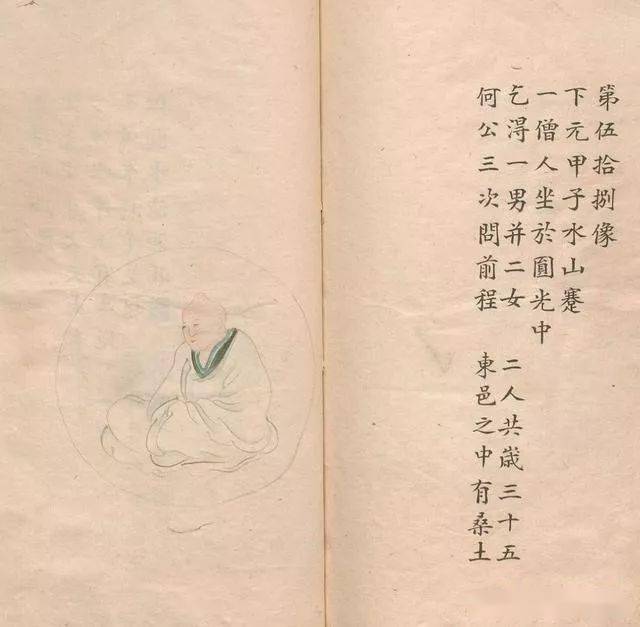 第伍拾捌像
下元甲子水山蹇
一僧人坐於圓光中
乞淂一男并二女 二人共歲三十五
何公三次問前程 東邑之中有桑土